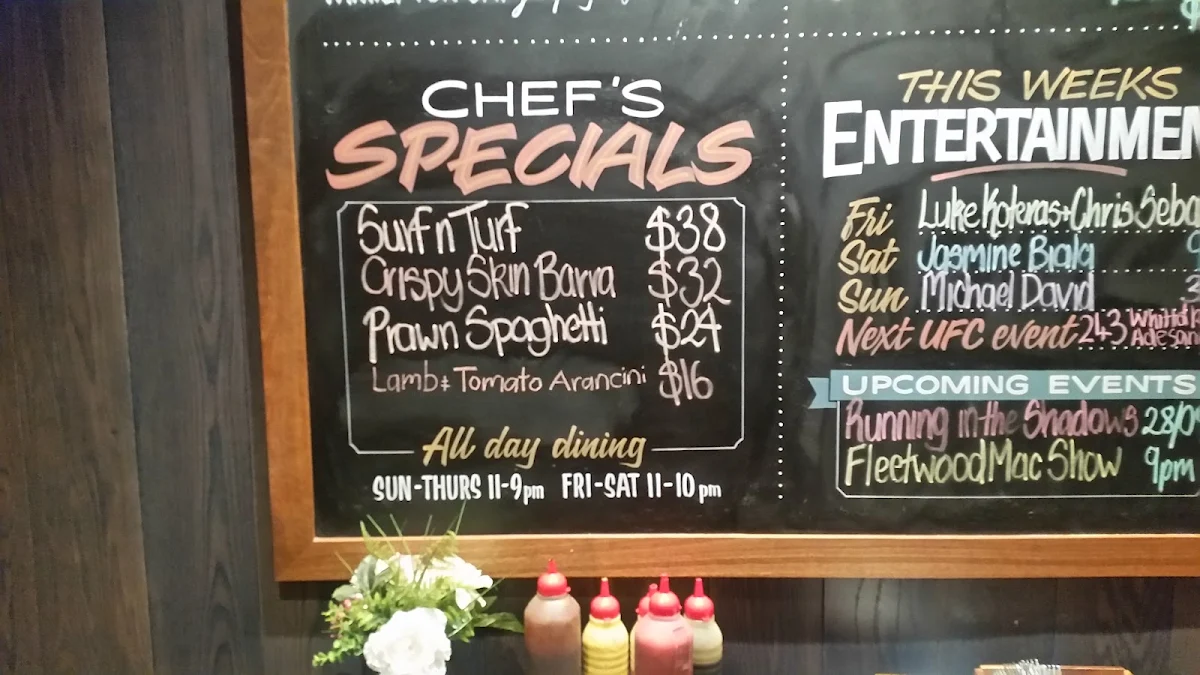 CHEF'S
SPECIALS
Surf n Turf $38
Crispy Skin Barra $32
Prawn Spaghetti $24
Lamb + Tomato Arancini $16
All day dining
SUN-THURS 11-9pm FRI-SAT 11-10pm
THIS WEEKS
ENTERTAINMEN
Fri Luke Koteras + Chris Seba
Sat Jasmine Biala
Sun Michael David
Next UFC event 243
UPCOMING EVENTS
Running in the Shadows 28/
Fleetwood Mac Show 9pm